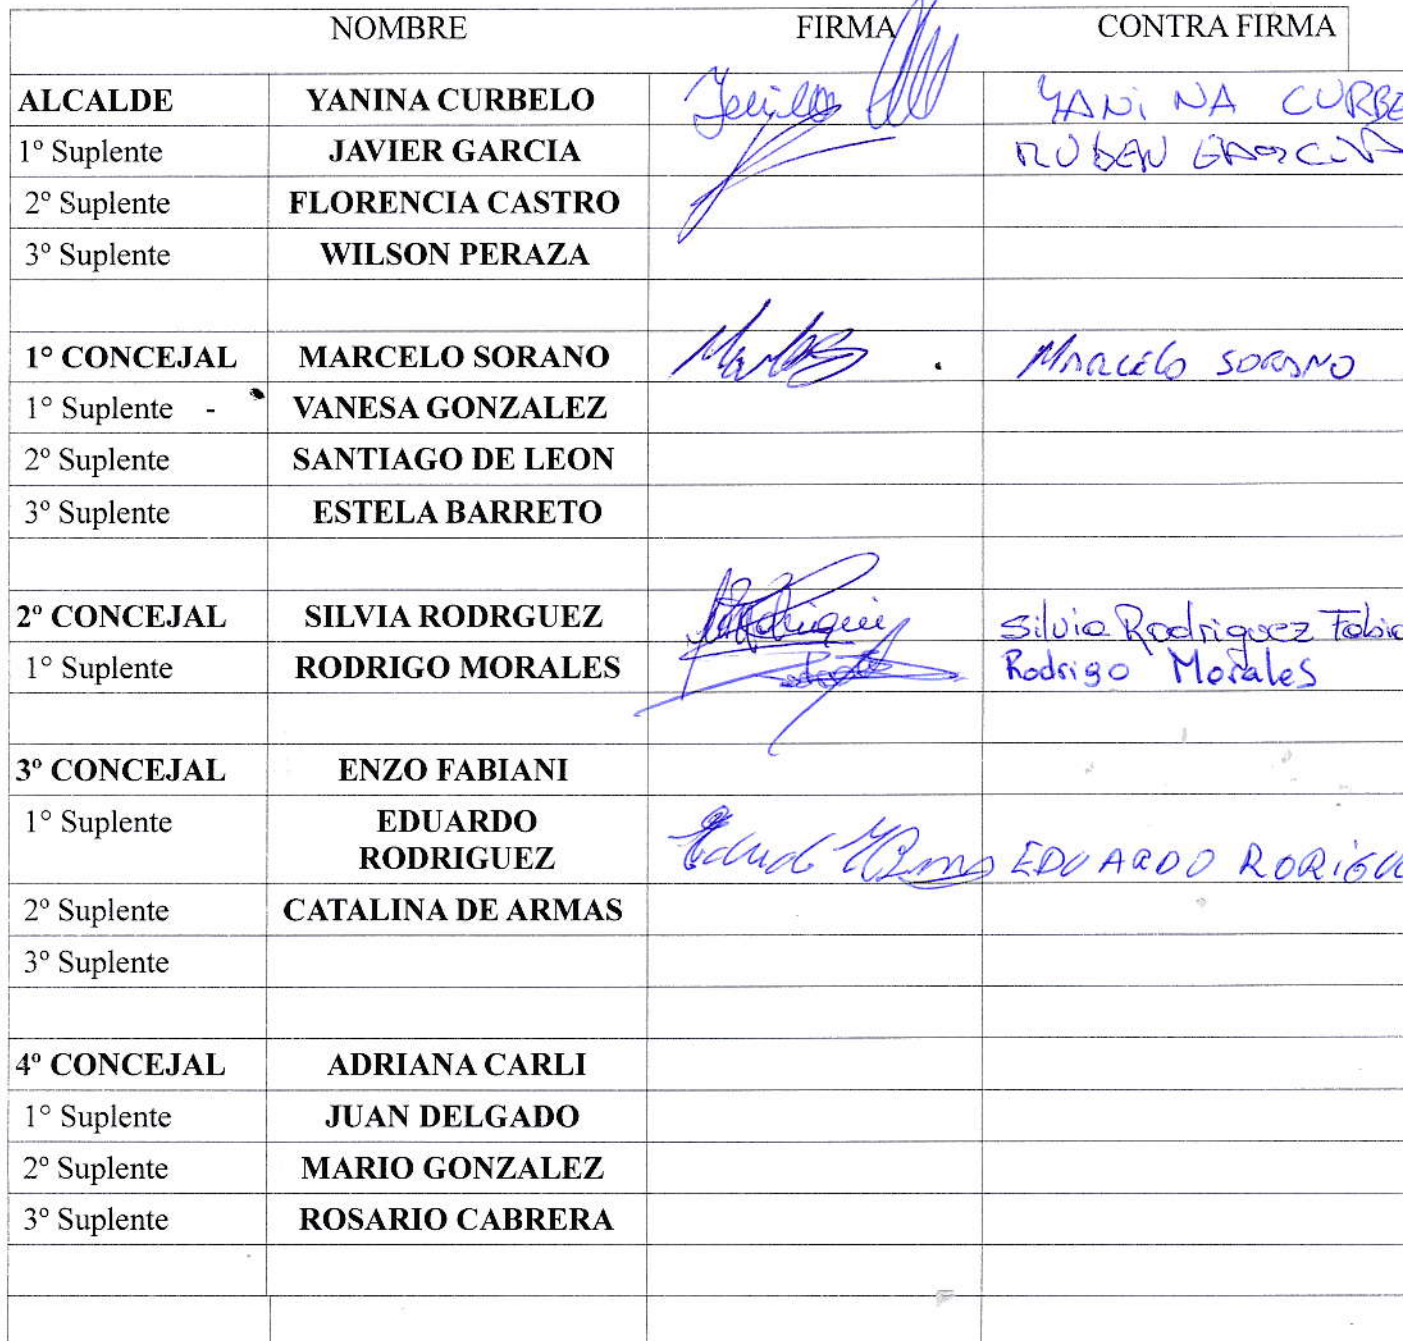 NOMBRE FIRMA CONTRA FIRMA
ALCALDE YANINA CURBELO YANINA CURBE
1º Suplente JAVIER GARCIA RUBEN GARCIA
2º Suplente FLORENCIA CASTRO
3º Suplente WILSON PERAZA
1° CONCEJAL MARCELO SORANO MARCELO SORANO
1° Suplente - VANESA GONZALEZ
2º Suplente SANTIAGO DE LEON
3º Suplente ESTELA BARRETO
2º CONCEJAL SILVIA RODRGUEZ Silvia Rodriguez Fabia
1° Suplente RODRIGO MORALES Rodrigo Morales
3º CONCEJAL ENZO FABIANI
1° Suplente EDUARDO
RODRIGUEZ EDUARDO RORIGU
2º Suplente CATALINA DE ARMAS
3º Suplente
4º CONCEJAL ADRIANA CARLI
1° Suplente JUAN DELGADO
2º Suplente MARIO GONZALEZ
3º Suplente ROSARIO CABRERA